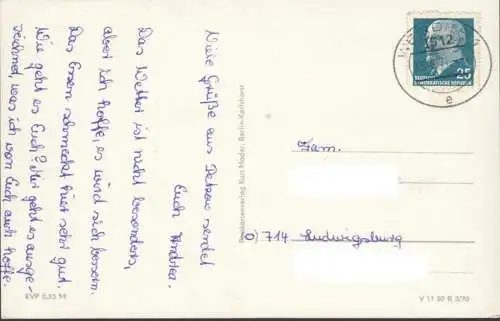 Viele Grüße aus Petzow sendet
Euch Andrea.
Das Wetter ist nicht besonders,
aber ich hoffe, es wird sich bessern.
Das Essen schmeckt hier sehr gut.
Wie geht es Euch? Mir geht es ausge-
zeichnet, was ich von Euch auch hoffe.
EVP 0,25 M
Postkartenverlag Kurt Mader, Berlin-Karlshorst
25
DEMOKRATISCHE REPUBLIK
e
Fam.
o) 714 Ludwigsburg
V 11 50